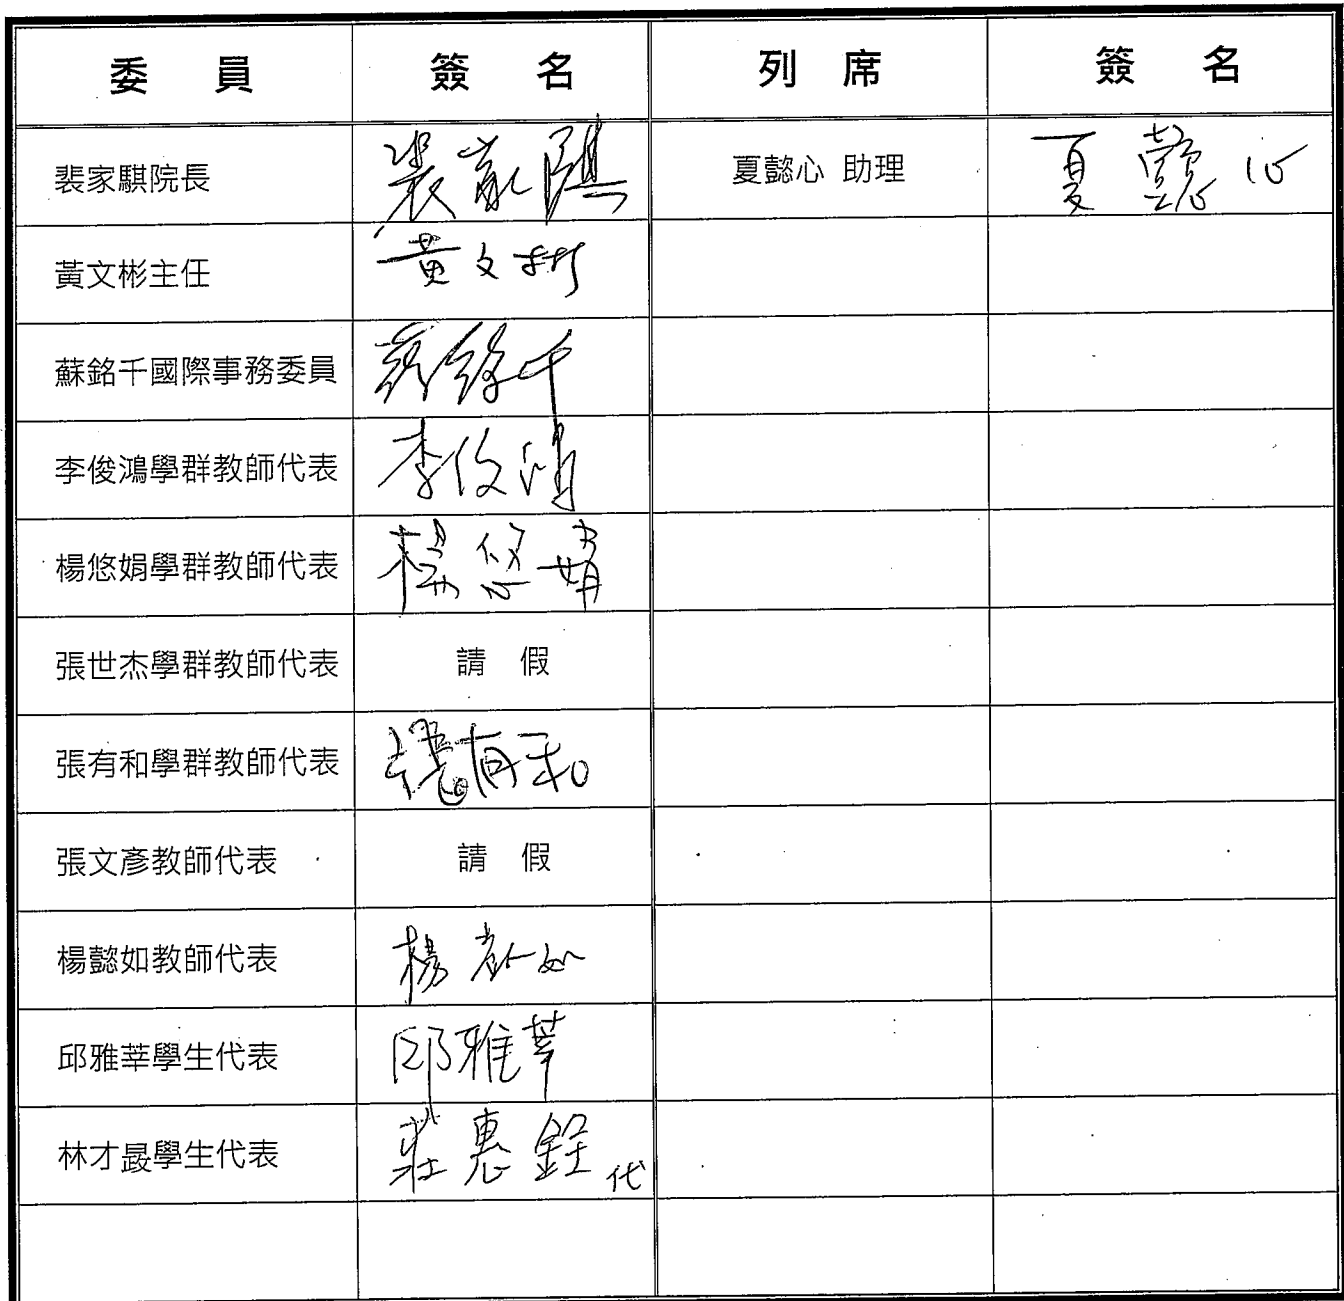 委 員 簽 名 列 席 簽 名
裴家騏院長 裴家騏 夏懿心 助理 夏懿心
黃文彬主任 黃文彬
蘇銘千國際事務委員 蘇銘千
李俊鴻學群教師代表 李俊鴻
楊悠娟學群教師代表 楊悠娟
張世杰學群教師代表 請 假
張有和學群教師代表 張有和
張文彥教師代表 請 假
楊懿如教師代表 楊懿如
邱雅莘學生代表 邱雅莘
林才晸學生代表 莊惠銓 代